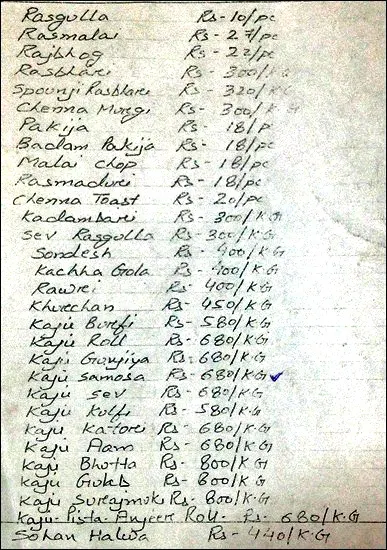 Rasgulla Rs- 10/pc
Rasmalai Rs- 27/pc
Rajbhog Rs- 22/pc
Rasbhari Rs- 300/KG
Spoonji Rasbhari Rs- 320/KG
Chenna Murgi Rs- 300/KG
Pakija Rs- 18/pc
Badam Pakija Rs- 18/pc
Malai Chop Rs- 18/pc
Rasmadurei Rs- 18/pc
Chenna Toast Rs- 20/pc
Kadambari Rs- 300/K.G
Sev Rasgulla Rs- 300/K.G
Sondesh Rs- 400/K.G
Kachha Gola Rs- 400/K.G
Rawrei Rs- 400/K.G
Khurechan Rs- 450/K.G
Kaju Burfi Rs- 580/K.G
Kaju Roll Rs- 680/K.G
Kaju Gunjiya Rs- 680/K.G
Kaju Samosa Rs- 680/K.G ✓
Kaju Sev Rs- 680/K.G
Kaju Kulfi Rs- 580/K.G
Kaju Katorei Rs- 680/K.G
Kaju Aam Rs- 680/K.G
Kaju Bhutta Rs- 800/K.G
Kaju Gulab Rs- 800/K.G
Kaju Surajmuki Rs- 800/K.G
Kaju Pista Anjeer Roll- Rs- 680/K.G
Sohan Halwa Rs- 440/K.G